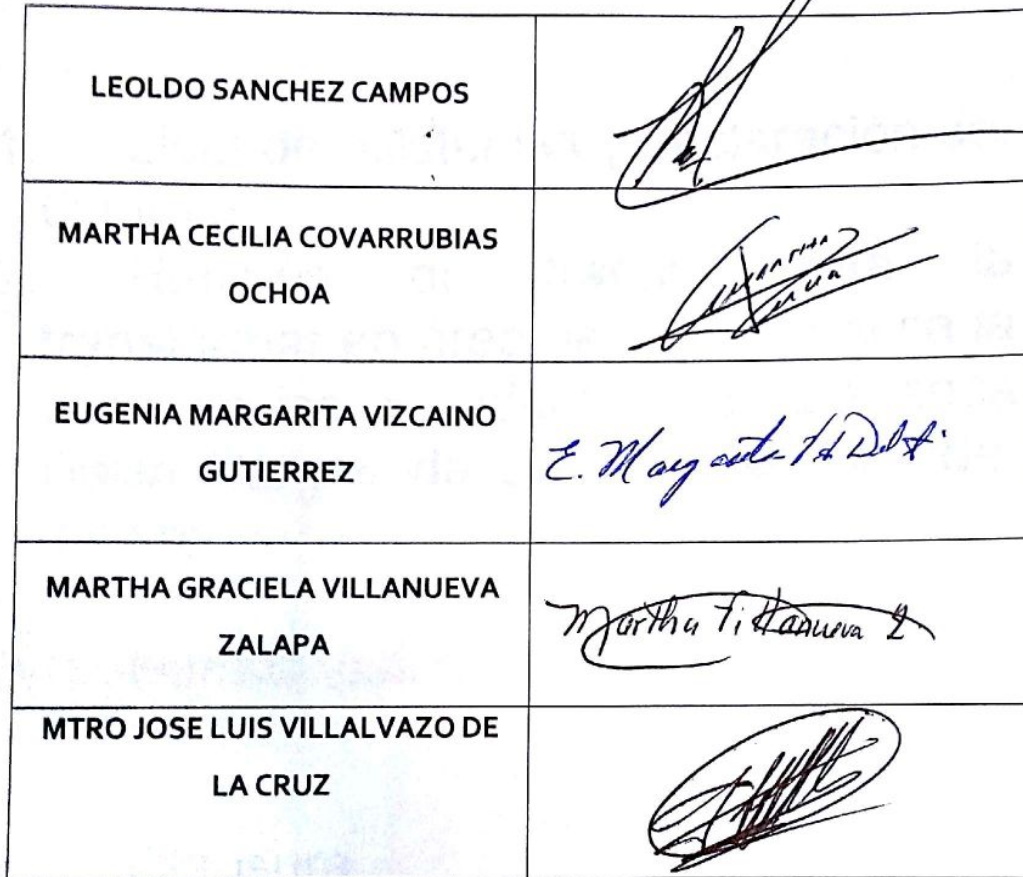 LEOLDO SANCHEZ CAMPOS
MARTHA CECILIA COVARRUBIAS
OCHOA
EUGENIA MARGARITA VIZCAINO
GUTIERREZ
E. Margarita
MARTHA GRACIELA VILLANUEVA
ZALAPA
Martha Villanueva Z.
MTRO JOSE LUIS VILLALVAZO DE
LA CRUZ